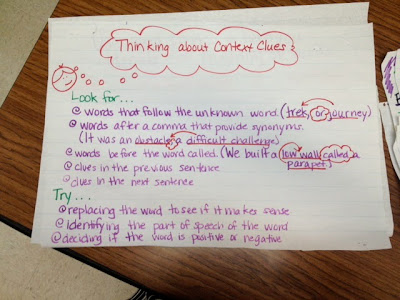 Thinking about Context Clues
Look for...
words that follow the unknown word. (trek, or journey)
words after a comma that provide synonyms.
(It was an obstacle, a difficult challenge)
words before the word called. (We built a low wall called a
parapet.)
clues in the previous sentence
clues in the next sentence
Try...
replacing the word to see if it makes sense
identifying the part of speech of the word
deciding if the word is positive or negative